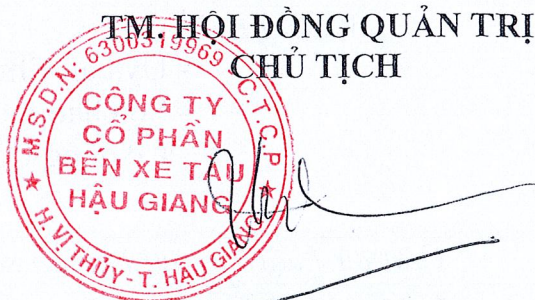 TM. HỘI ĐỒNG QUẢN TRỊ
CHỦ TỊCH
M.S.D.N: 6300319969 - C.T.C.P
CÔNG TY
CỔ PHẦN
BẾN XE TÀU
HẬU GIANG
H. VỊ THỦY - T. HẬU GIANG